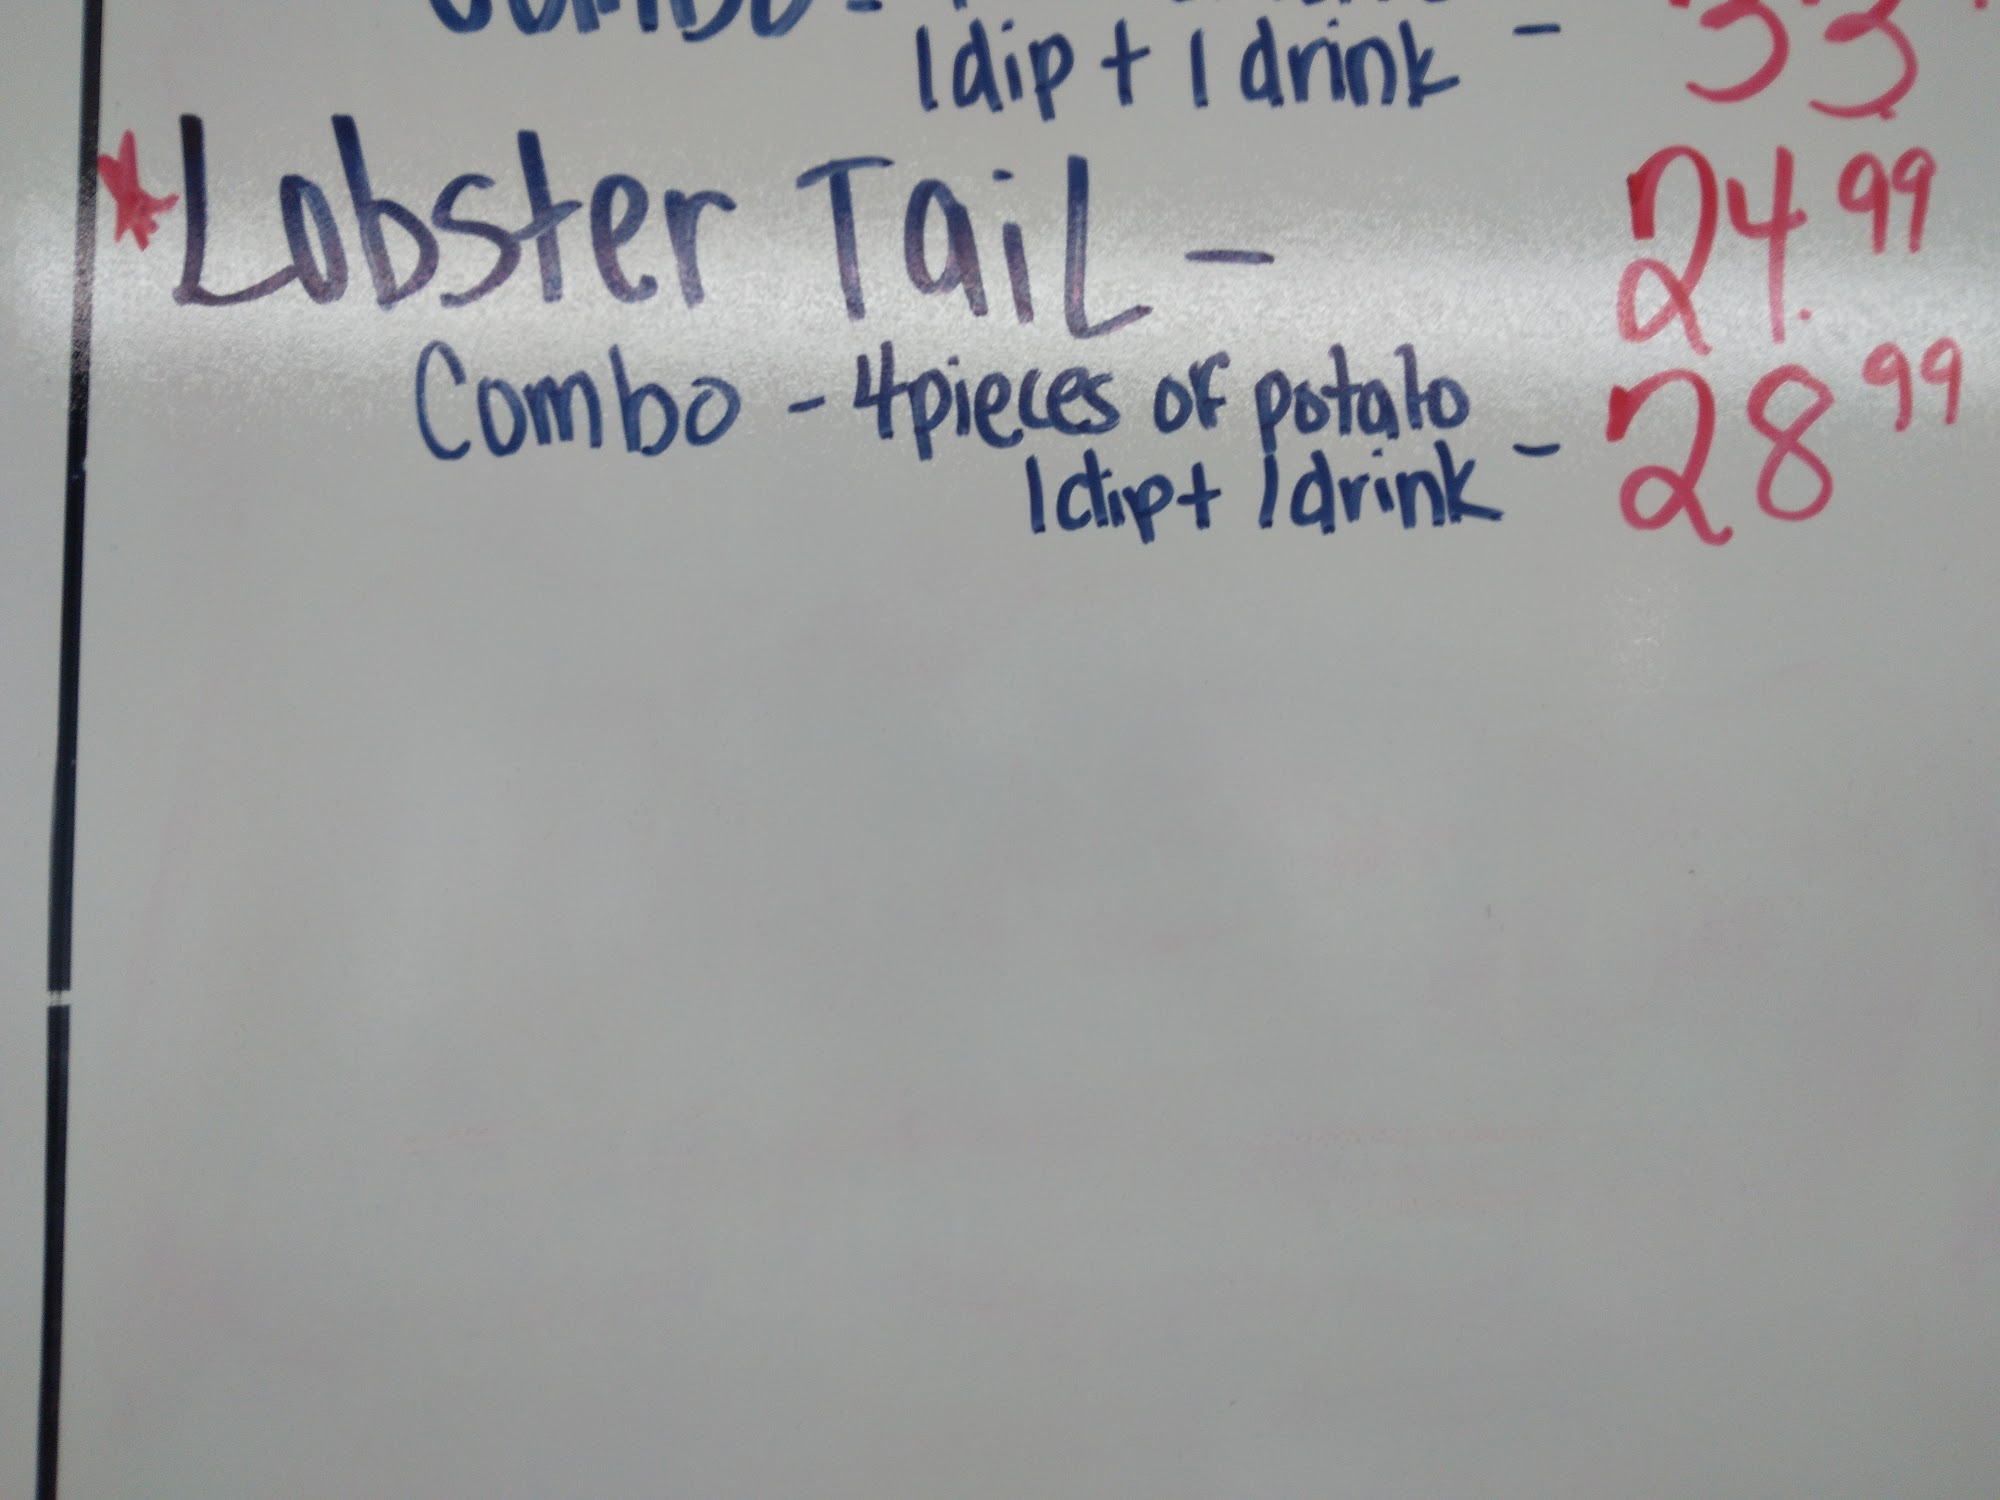 Combo -
1 dip + 1 drink - 33
*Lobster Tail - 24.99
Combo - 4 pieces of potato
1 dip + 1 drink - 28 99